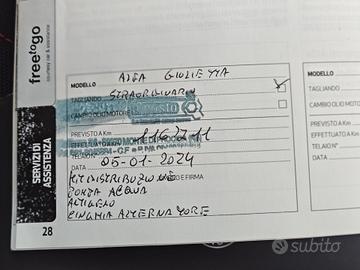 freetogo
courtesy car & assistance
SERVIZI DI
ASSISTENZA
28
MODELLO ALFA GIULIETTA
TAGLIANDO STRAORDINARIO
CAMBIO OLIO MOTORE
PREVISTO A Km
EFFETTUATO A Km
TELAIO N°
DATA 05-01-2024
FIRMA
KIT DISTRIBUZIONE
POMPA ACQUA
ANTIGELO
CINGHIA ALTERNATORE
MODELLO
TAGLIANDO
CAMBIO OLIO MOTO
PREVISTO A Km
EFFETTUATO A Km
TELAIO N°
DATA
subito